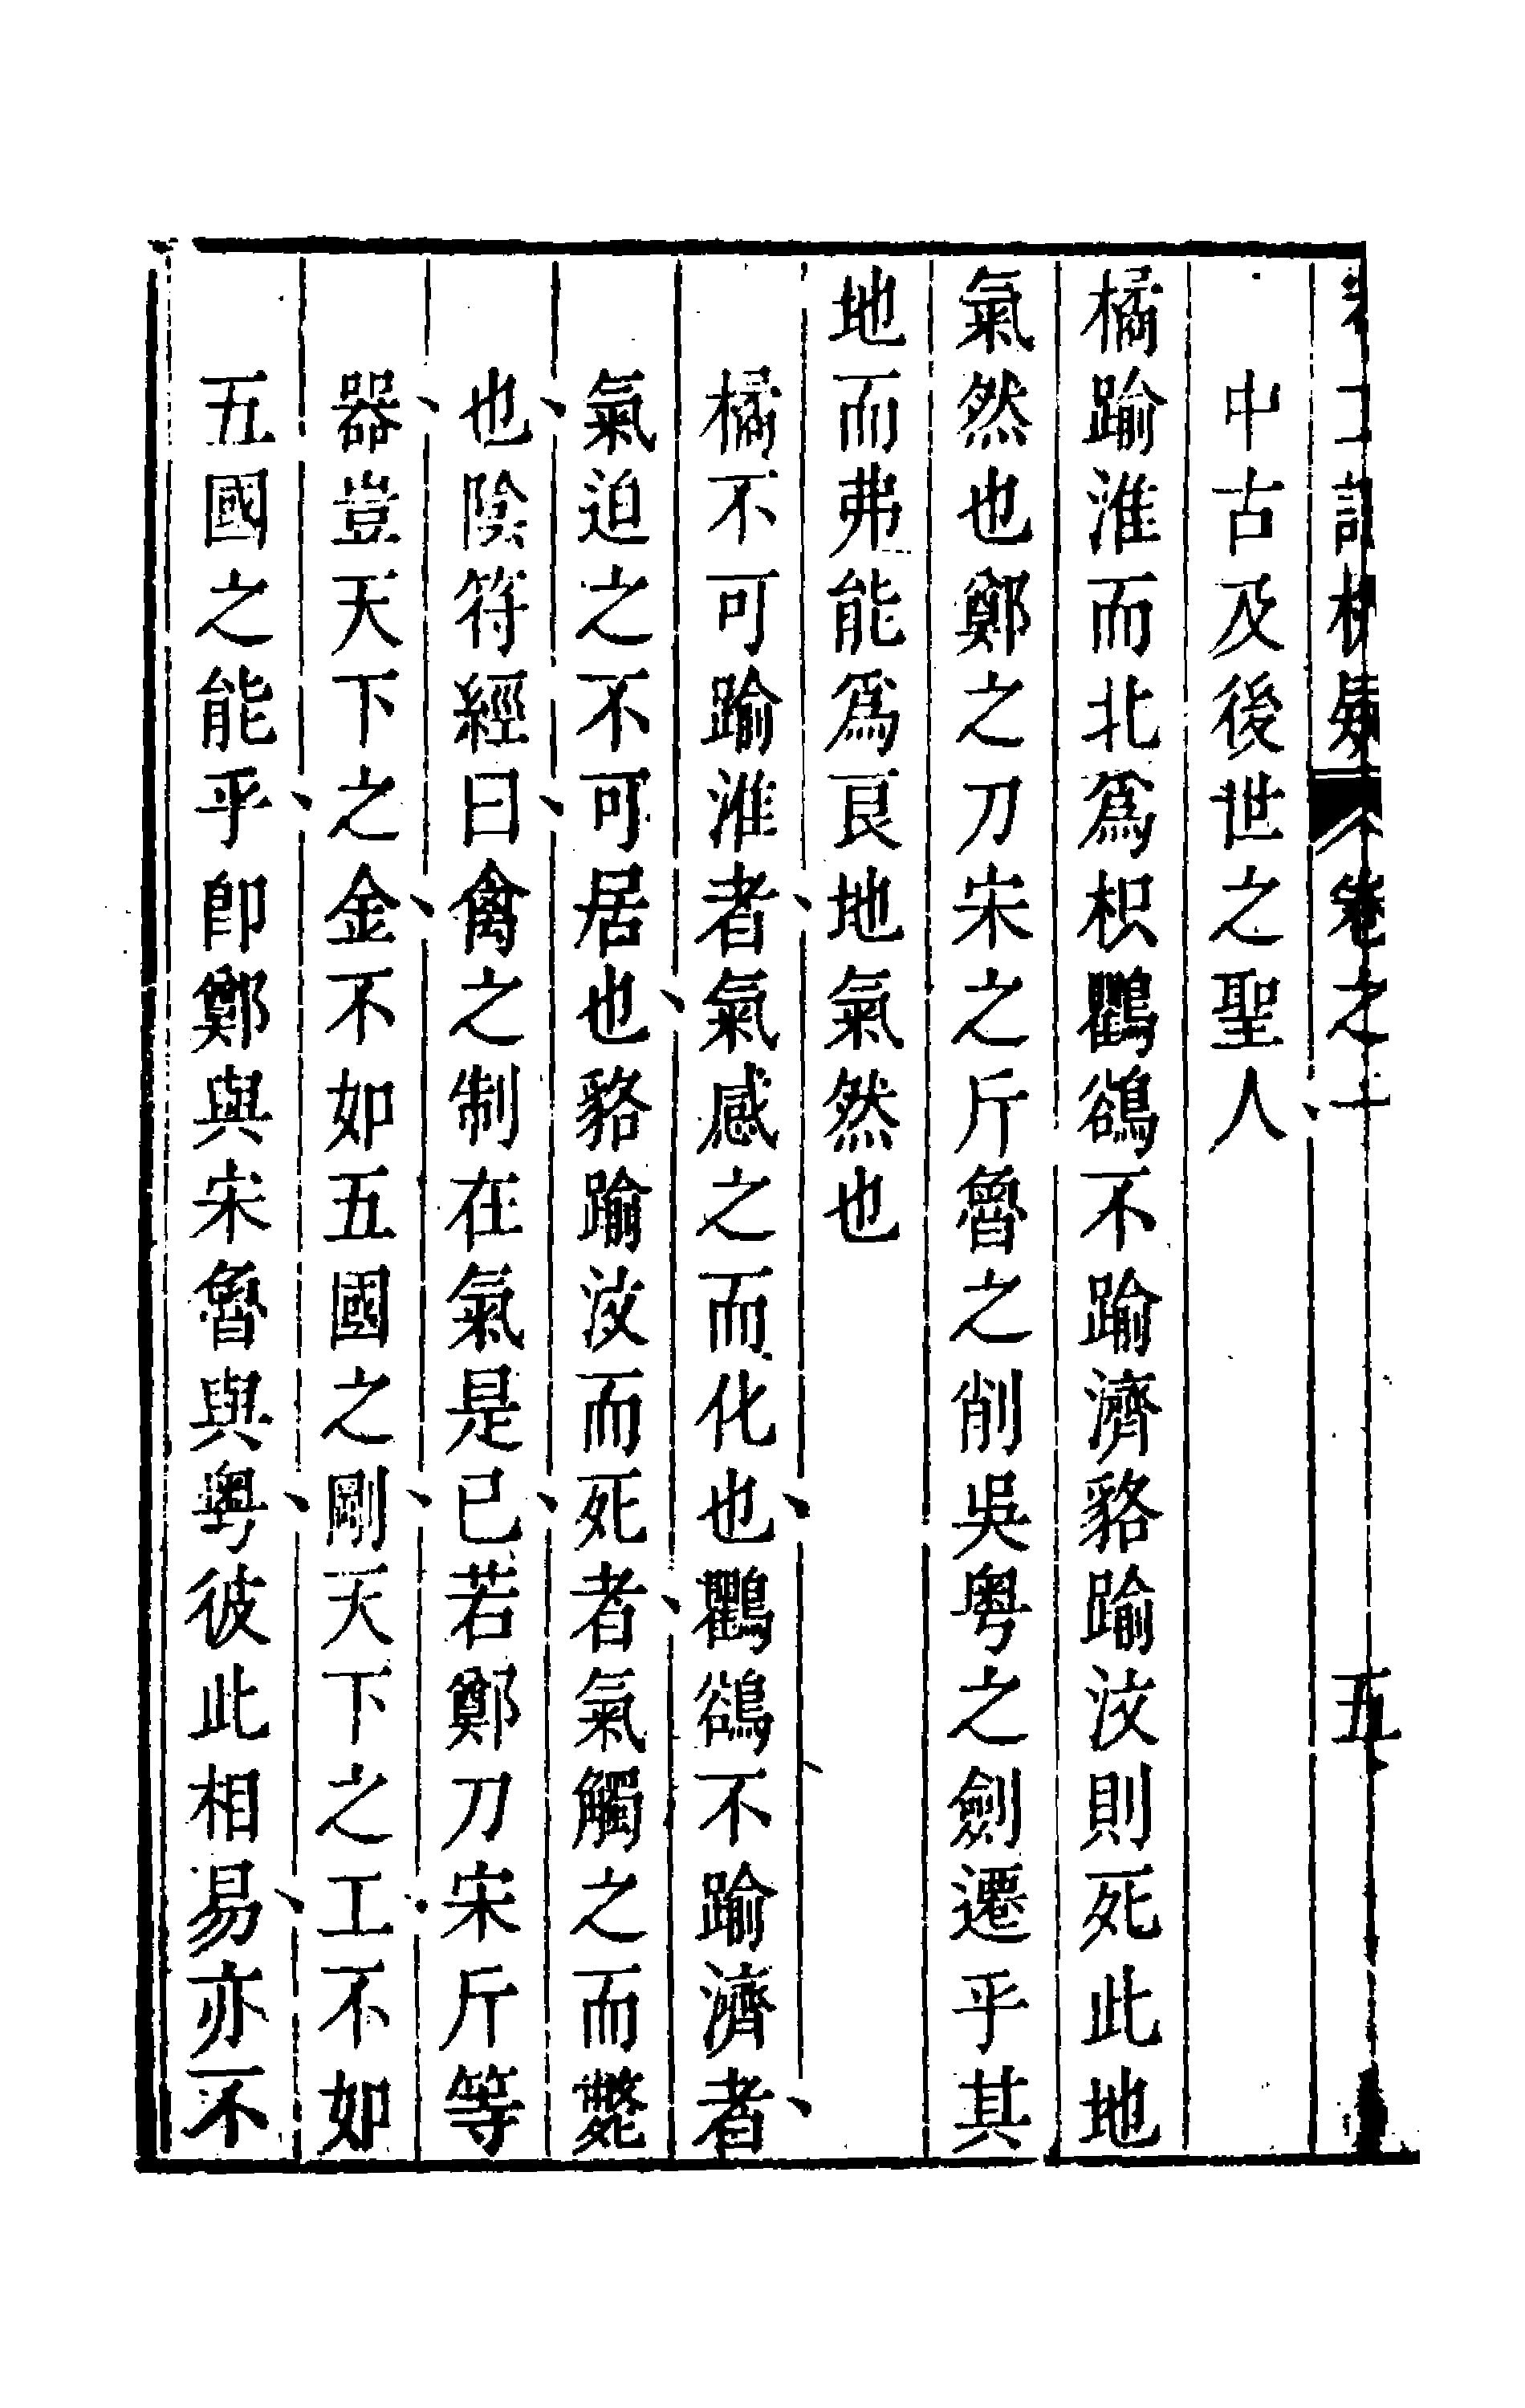 考工記析疑 卷之一 五
中古及後世之聖人
橘踰淮而北爲枳鸜鵒不踰濟貉踰汶則死此地
氣然也鄭之刀宋之斤魯之削吳粤之劍遷乎其
地而弗能爲良地氣然也
橘不可踰淮者氣感之而化也鸜鵒不踰濟者
氣迫之不可居也貉踰汶而死者氣觸之而斃
也陰符經曰禽之制在氣是已若鄭刀宋斤等
器豈天下之金不如五國之剛天下之工不如
五國之能乎卽鄭與宋魯與粤彼此相易亦不